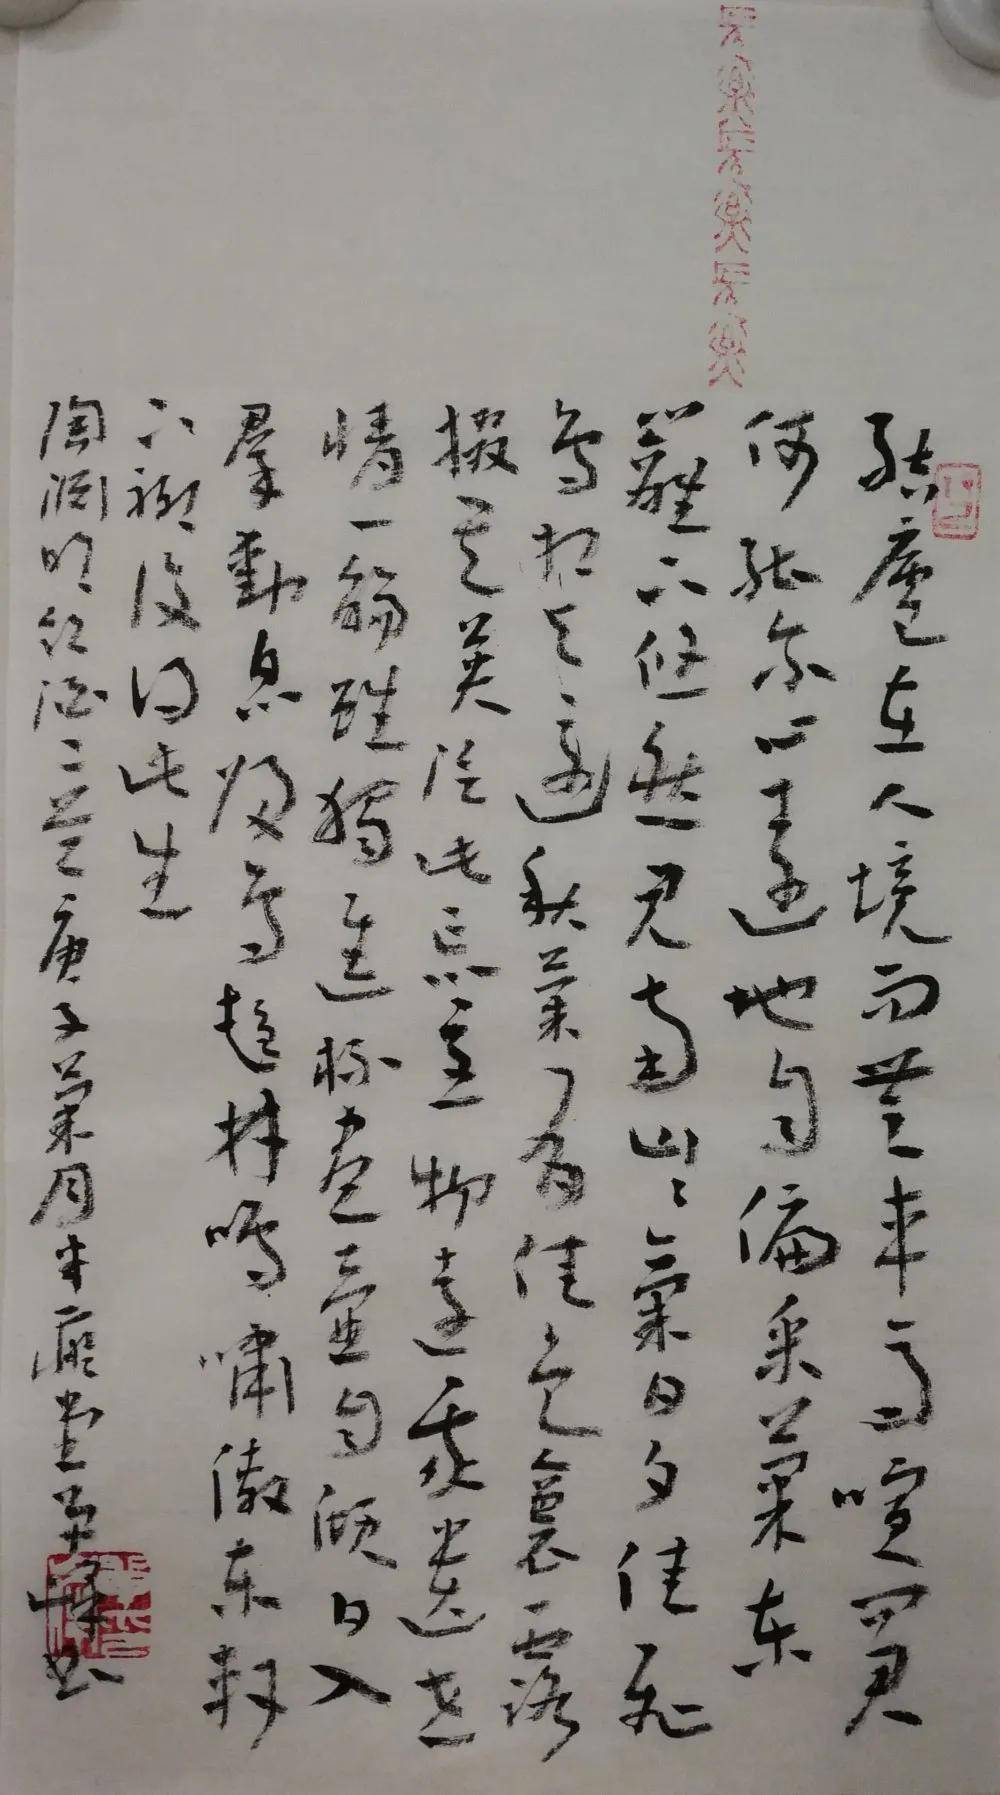 結廬在人境而無車馬喧問君
何能尔心遠地自偏采菊東
籬下悠然見南山〻氣日夕佳飛
鳥相与還秋菊有佳色裛露
掇其英泛此忘憂物遠我遺世
情一觴雖獨進杯盡壺自傾日入
羣動息歸鳥趨林鳴嘯傲東軒
下聊復得此生
陶淵明飲酒二首庚子菊月半癡堂書